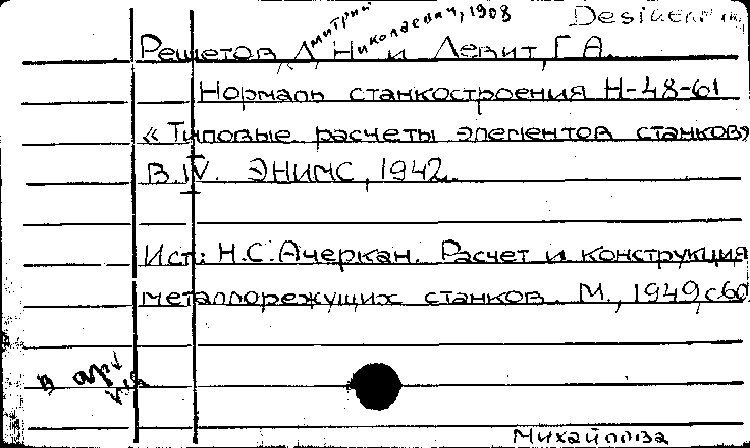 Дмитрий Николаевич, 1908
Решетов, Д. Н. и Левит, Г. А.
Нормаль станкостроения Н-48-61
«Типовые расчеты элементов станков»
В. IV. ЭНИМС, 1942.
Ист.: Н.С. Ачеркан. Расчет и конструкция
металлорежущих станков. М., 1949, с60
в
Михайлова